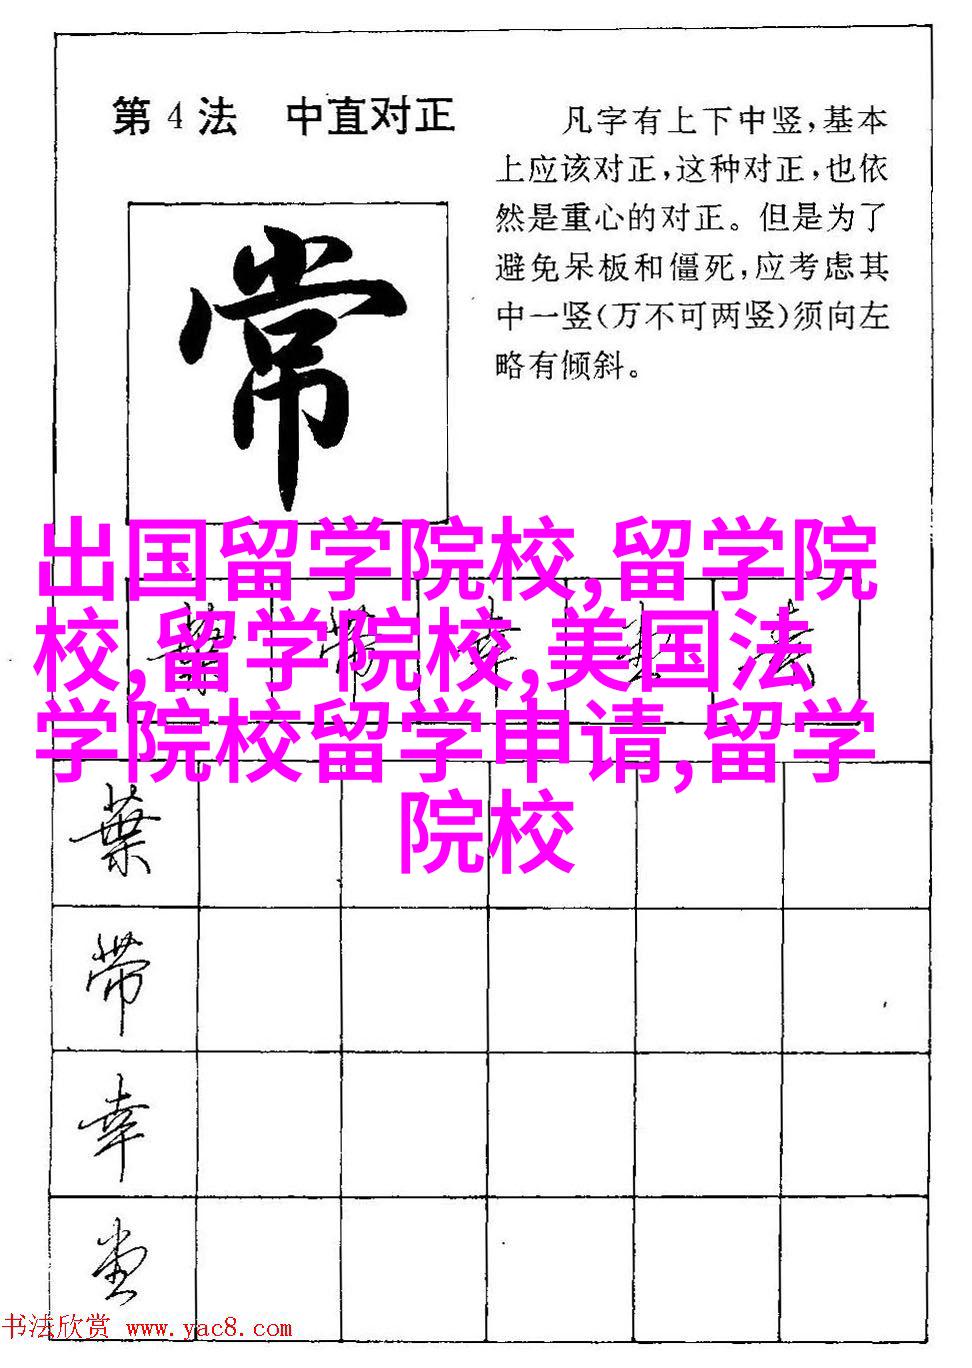 第4法 中直对正
凡字有上下中竖,基本
上应该对正,这种对正,也依
然是重心的对正。但是为了
避免呆板和僵死,应考虑其
中一竖(万不可两竖)须向左
略有倾斜。
常
出国留学院校,留学院
校,留学院校,美国法
学院校留学申请,留学
院校
葉 带 幸 去
葉
带
幸
堂
书法欣赏 www.yac8.com